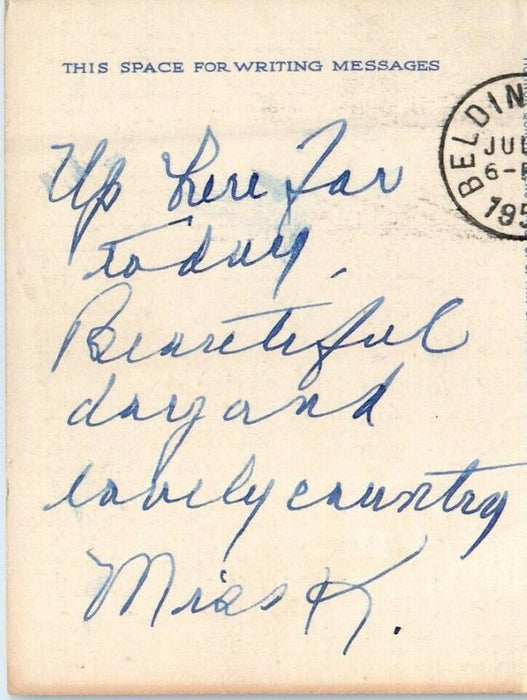 THIS SPACE FOR WRITING MESSAGES
BELDIN
JUL
6-
195
Up here for
today.
Beautiful
day and
lovely country
Miss K.